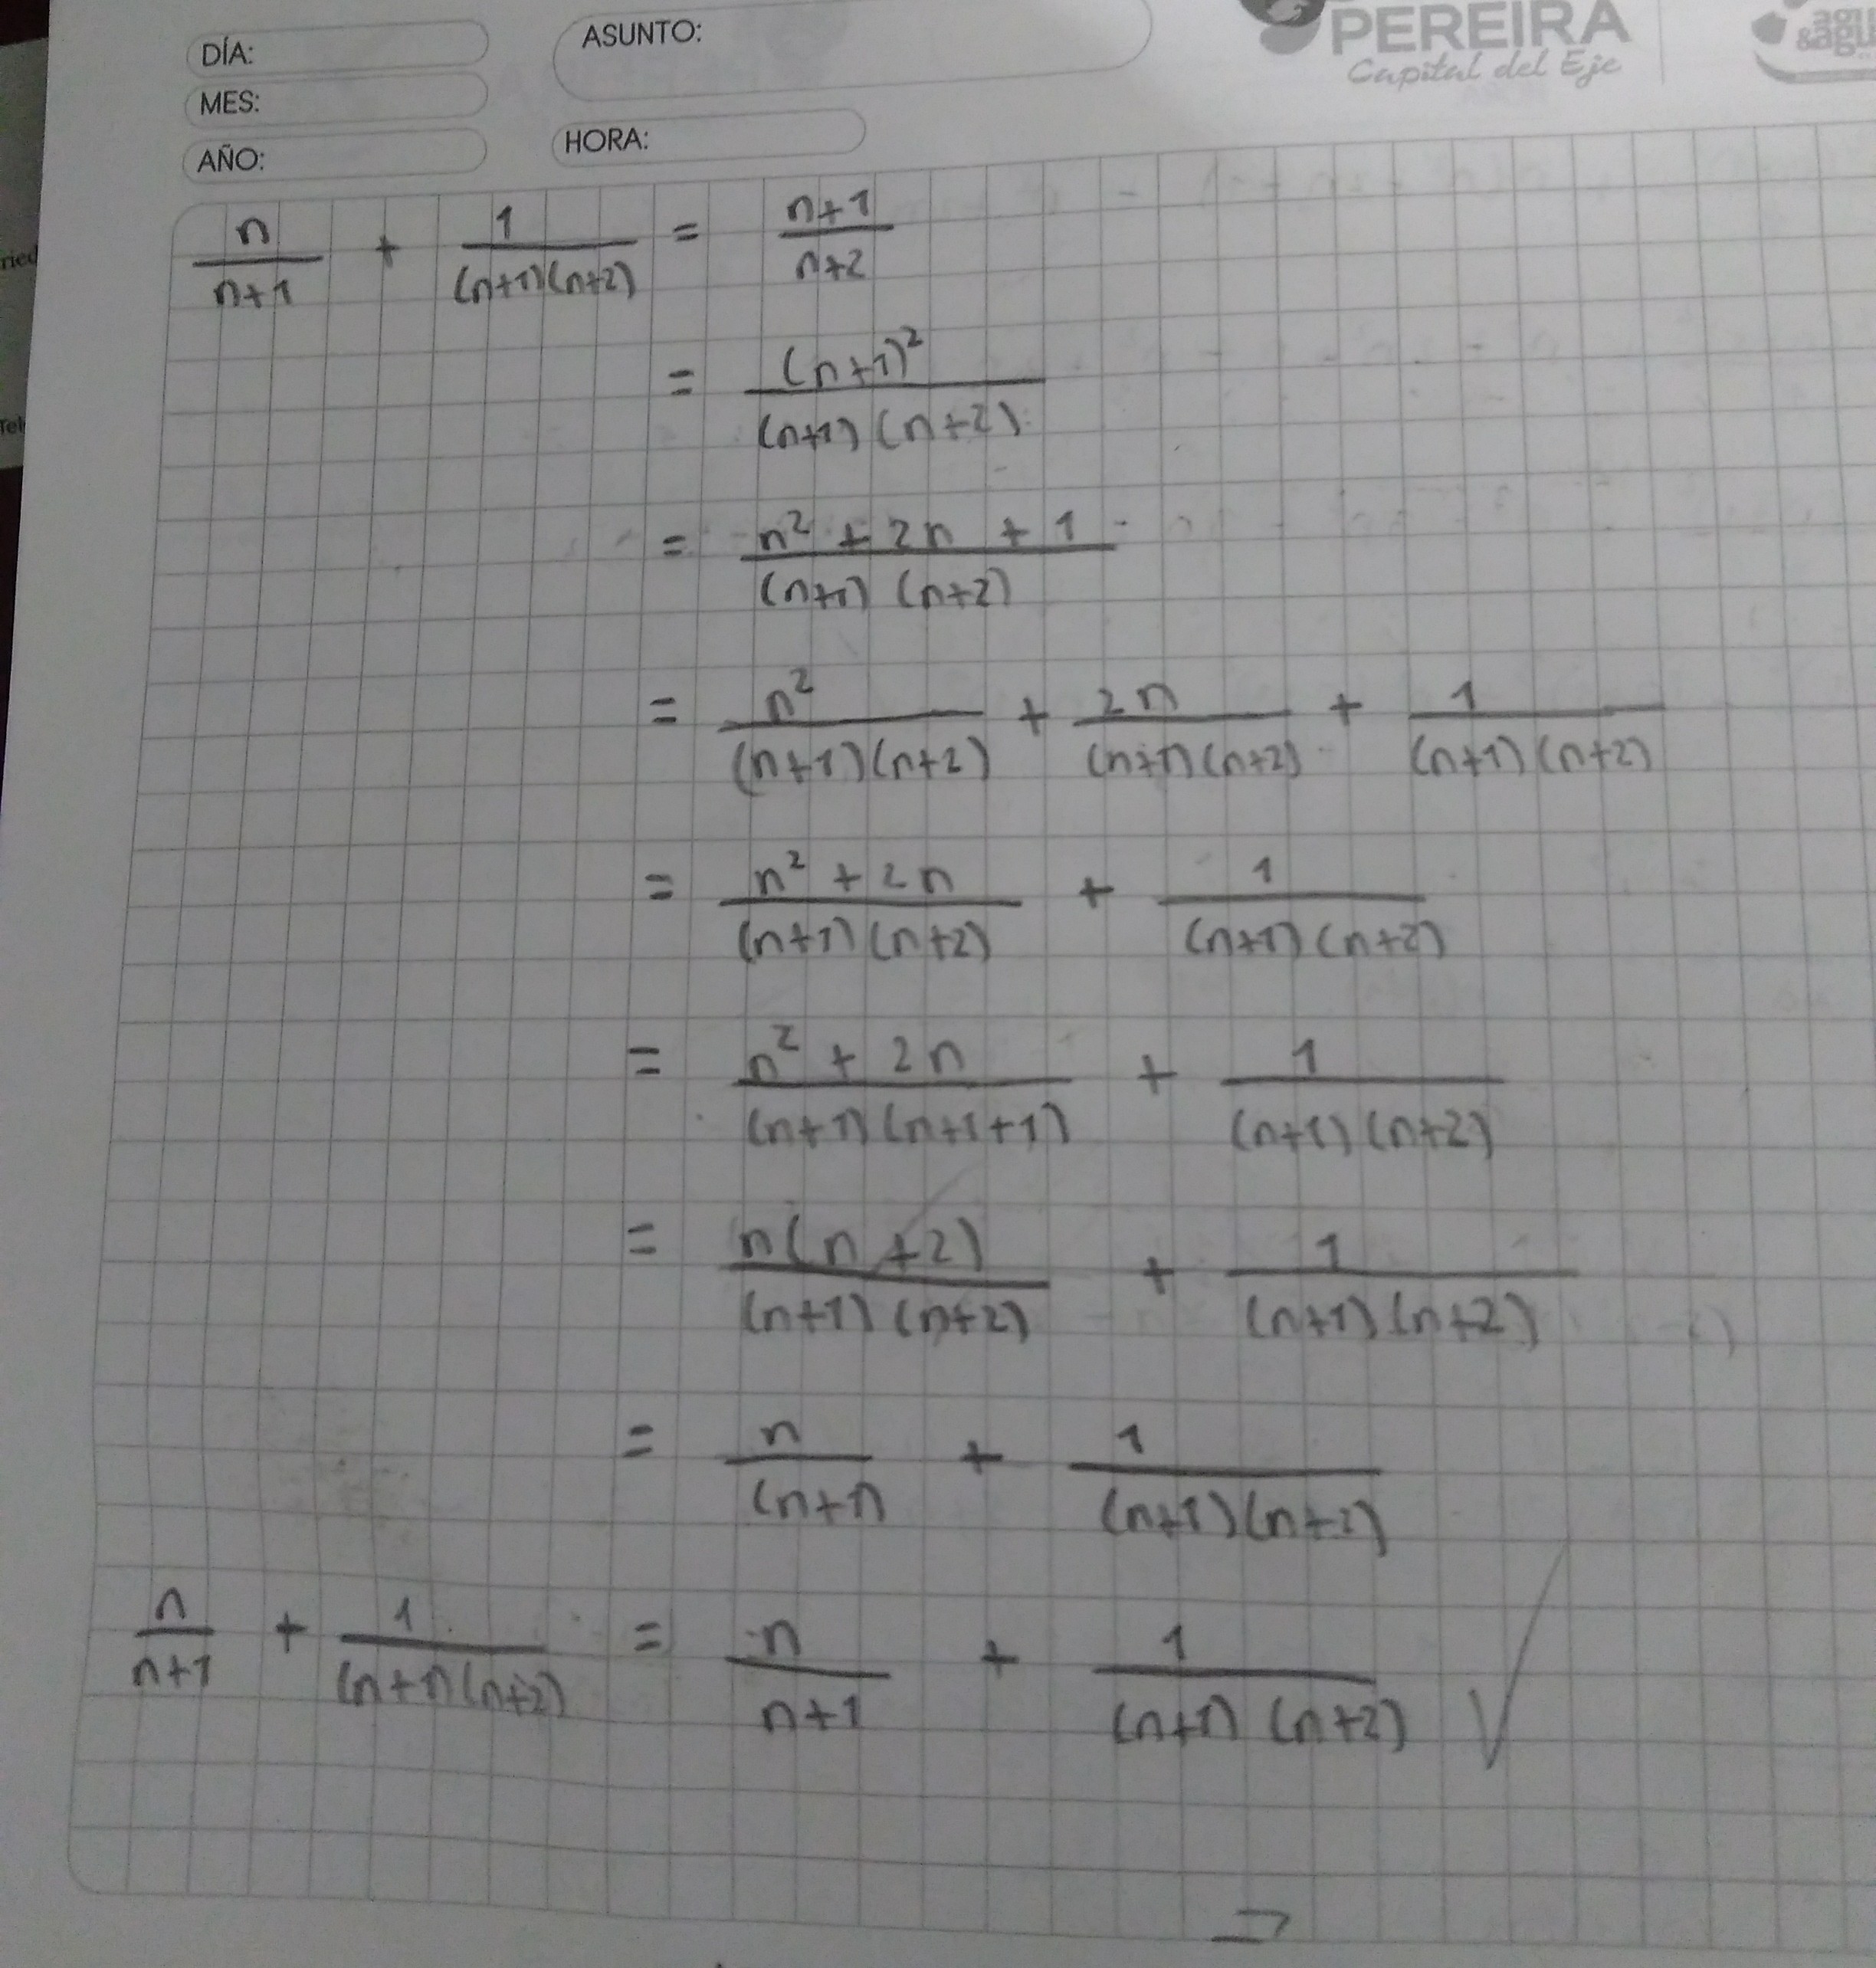 DÍA:
ASUNTO:
PEREIRA
Capital del Eje
MES:
AÑO:
HORA:
n/(n+1) + 1/((n+1)(n+2)) = (n+1)/(n+2)
= (n+1)²/((n+1)(n+2))
= (n² + 2n + 1)/((n+1)(n+2))
= n²/((n+1)(n+2)) + 2n/((n+1)(n+2)) + 1/((n+1)(n+2))
= (n² + 2n)/((n+1)(n+2)) + 1/((n+1)(n+2))
= (n² + 2n)/((n+1)(n+1+1)) + 1/((n+1)(n+2))
= n(n+2)/((n+1)(n+2)) + 1/((n+1)(n+2))
= n/(n+1) + 1/((n+1)(n+2))
n/(n+1) + 1/((n+1)(n+2)) = n/(n+1) + 1/((n+1)(n+2)) √